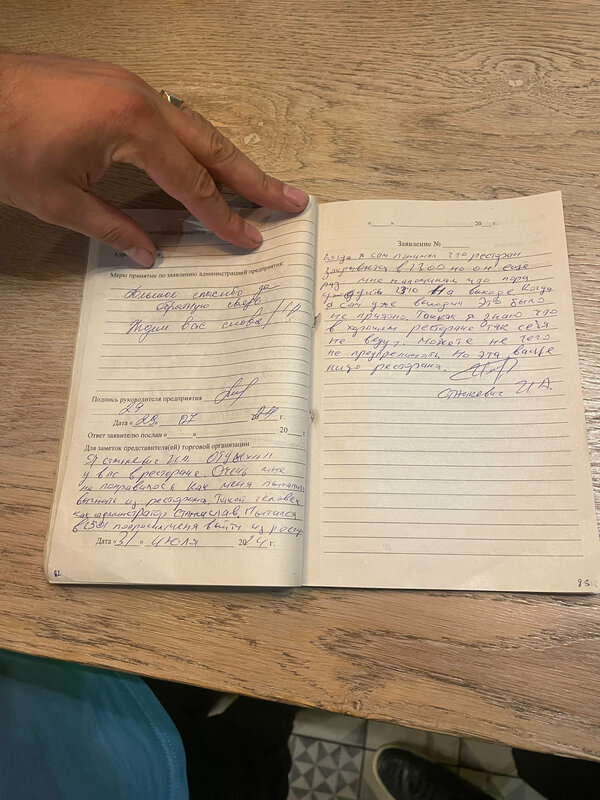 заявителя
Адрес
Меры принятые по заявлению администрацией предприятия:
Большое спасибо за
обратную связь
Ждем Вас снова!
Подпись руководителя предприятия
29
Дата « 07 г.
Ответ заявителю послан « » 20 г.
Для заметок представителя(ей) торговой организации
Я И.А.
у вас в ресторане. Очень мне
не понравилось как меня пытались
выгнать из ресторана. Такой человек
как администратор Станислав. Пытался
в 2351 меня выйти из рест
Дата « 31 » Июля 2024 г.
82
« » 20 г.
Заявление №
Когда я сам помнил что ресторан
закрывается в 2400 но он еще
раз мне напомнил что пора
уходить это на выходе когда
я сам уже выходил Это было
не приятно. Так как я знаю что
в хорошем ресторане так себя
не ведут. Можете не чего
не предпренимать Но это ваше
лицо ресторана.
И.А.
83